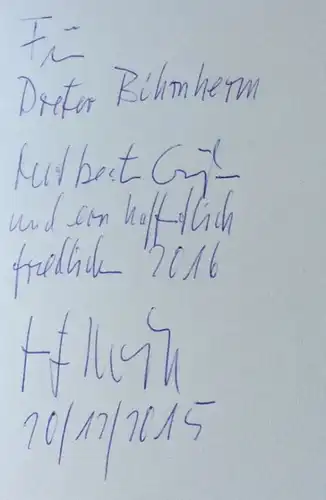 Für
Dieter Bihmherm
Mit best Grüßen
und ein hoffentlich
friedliches 2016
20/12/2015